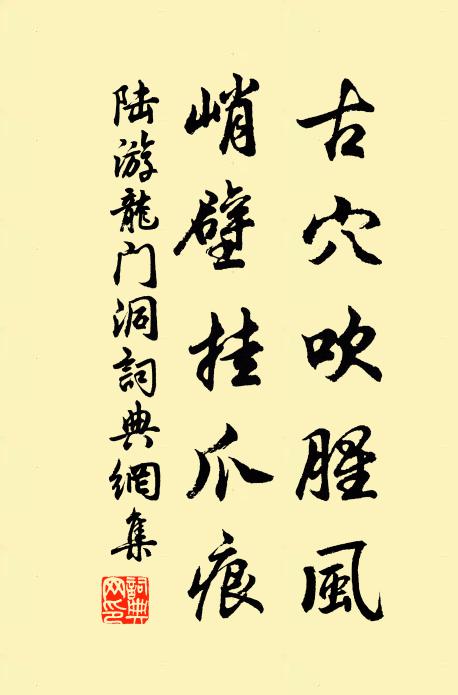 古穴吹腥風
峭壁挂爪痕
陆游龍门洞詞典網集
詞典网印